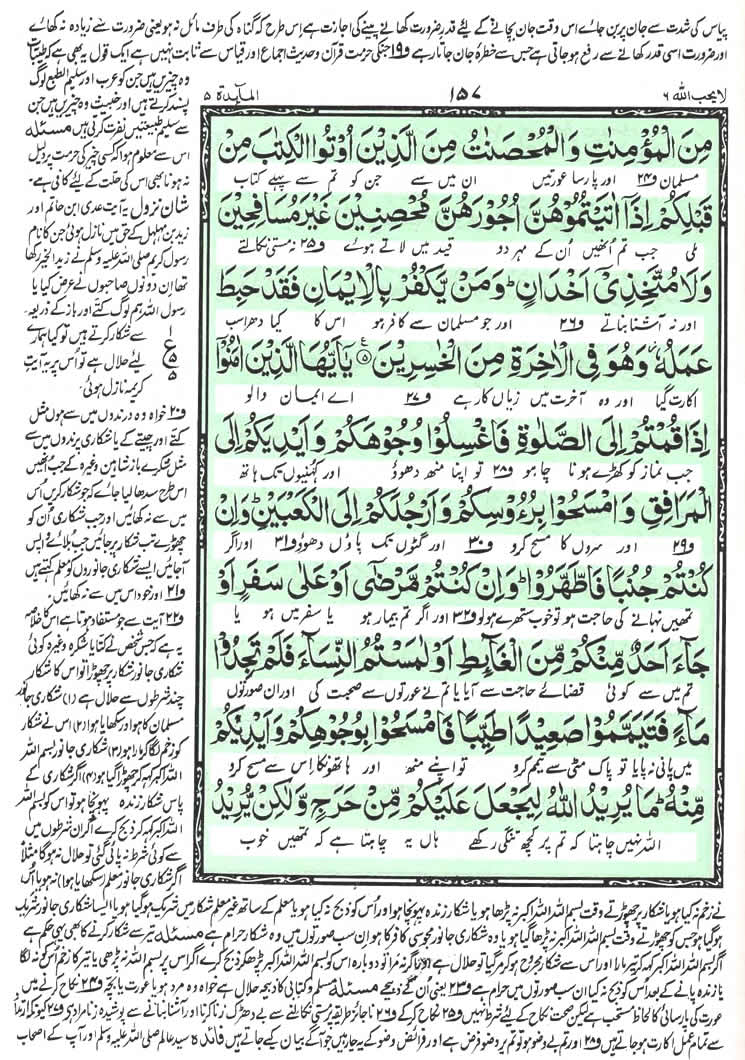 پیاس کی شدت سے جان پر بن جائے اس وقت جان بچانے کے لئے قدر ضرورت کھانے پینے کی اجازت ہے اس طرح کہ گناہ کی طرف مائل نہ ہو یعنی ضرورت سے زیادہ نہ کھائے
اور ضرورت اسی قدر کھانے سے رفع ہو جاتی ہے جس سے خطرۂ جان جاتا رہے و۱۹ جنکی حرمت قرآن و حدیث اجماع اور قیاس سے ثابت نہیں ہے ایک قول یہ بھی ہے کہ طیبات
لا یحب اللہ ۶
۱۵۷
المآئدۃ ۵
مِنَ الْمُؤْمِنٰتِ وَالْمُحْصَنٰتُ مِنَ الَّذِیْنَ اُوْتُوا الْکِتٰبَ مِنْ
مسلمان و۲۴ اور پارسا عورتیں ان میں سے جن کو تم سے پہلے کتاب
قَبْلِکُمْ اِذَاۤ اٰتَیْتُمُوْهُنَّ اُجُوْرَهُنَّ مُحْصِنِیْنَ غَیْرَ مُسَافِحِیْنَ
ملی جب تم انھیں اُن کے مہر دو قید میں لاتے ہوئے و۲۵ نہ مستی نکالتے
وَلَا مُتَّخِذِیْۤ اَخْدَانٍ ؕ وَمَنْ یَّکْفُرْ بِالْاِیْمَانِ فَقَدْ حَبِطَ
اور نہ آشنا بناتے و۲۶ اور جو مسلمان سے کافر ہو اس کا کیا دھرا سب
عَمَلُهٗ ؗ وَهُوَ فِی الْاٰخِرَةِ مِنَ الْخٰسِرِیْنَ ۝۵ یٰۤاَیُّهَا الَّذِیْنَ اٰمَنُوْۤا
اکارت گیا اور وہ آخرت میں زیاں کار ہے و۲۷ اے ایمان والو
اِذَا قُمْتُمْ اِلَی الصَّلٰوةِ فَاغْسِلُوْا وُجُوْهَکُمْ وَاَیْدِیَکُمْ اِلَی
جب نماز کو کھڑے ہونا چاہو و۲۸ تو اپنا منھ دھوؤ اور کہنیوں تک ہاتھ
الْمَرَافِقِ وَامْسَحُوْا بِرُءُوْسِکُمْ وَاَرْجُلَکُمْ اِلَی الْکَعْبَیْنِ ؕ وَاِنْ
و۲۹ اور سروں کا مسح کرو و۳۰ اور گٹوں تک پاؤں دھوؤ و۳۱ اور اگر
کُنْتُمْ جُنُبًا فَاطَّهَّرُوْا ؕ وَاِنْ کُنْتُمْ مَّرْضٰۤی اَوْ عَلٰی سَفَرٍ اَوْ
تمھیں نہانے کی حاجت ہو تو خوب ستھرے ہولو و۳۲ اور اگر تم بیمار ہو یا سفر میں ہو یا
جَآءَ اَحَدٌ مِّنْکُمْ مِّنَ الْغَآئِطِ اَوْ لٰمَسْتُمُ النِّسَآءَ فَلَمْ تَجِدُوْا
تم میں سے کوئی قضائے حاجت سے آیا یا تم نے عورتوں سے صحبت کی اور ان صورتوں
مَآءً فَتَیَمَّمُوْا صَعِیْدًا طَیِّبًا فَامْسَحُوْا بِوُجُوْهِکُمْ وَاَیْدِیْکُمْ
میں پانی نہ پایا تو پاک مٹی سے تیمم کرو تو اپنے منھ اور ہاتھوں کا اس سے مسح کرو
مِّنْهُ ؕ مَا یُرِیْدُ اللّٰهُ لِیَجْعَلَ عَلَیْکُمْ مِّنْ حَرَجٍ وَّلٰکِنْ یُّرِیْدُ
اللہ نہیں چاہتا کہ تم پر کچھ تنگی رکھے ہاں یہ چاہتا ہے کہ تمھیں خوب
وہ چیزیں ہیں جن کو عرب اور سلیم الطبع لوگ
پسند کرتے ہیں اور خبیث وہ چیزیں ہیں جن
سے سلیم طبیعتیں نفرت کرتی ہیں مسئلہ
اس سے معلوم ہوا کہ کسی چیز کی حرمت پر دلیل
نہ ہونا بھی اس کی حلت کے لئے کافی ہے۔
شان نزول یہ آیت عدی ابن حاتم اور
زید بن مہلہل کے حق میں نازل ہوئی جن کا نام
رسول کریم صلی اللہ علیہ وسلم نے زید الخیر رکھا
تھا ان دونوں صاحبوں نے عرض کیا یا
رسول اللہ ہم لوگ کتے اور باز کے ذریعہ
سے شکار کرتے ہیں تو کیا ہمارے
لئے حلال ہے تو اس پر یہ آیتِ
کریمہ نازل ہوئی۔
۱
ع
۵
۵
و۲۰ خواہ وہ درندوں میں سے ہوں مثل
کتے اور چیتے کے یا شکاری پرندوں میں سے
مثل شکرے باز شاہین وغیرہ کے جب انھیں
اس طرح سدھا لیا جائے کہ جو شکار کریں اُس
میں سے نہ کھائیں اور جب شکاری اُن کو
چھوڑے تب شکار پر جائیں جب بلائے واپس
آجائیں ایسے شکاری جانوروں کو معلم کہتے ہیں
و۲۱ اور خود اس میں سے نہ کھائیں۔
و۲۲ آیت سے جو مستفاد ہوتا ہے اس کا خلاصہ
یہ ہے کہ جس شخص نے کتا یا شکرہ وغیرہ کوئی
شکاری جانور شکار پر چھوڑا تو اس کا شکار
چند شرطوں سے حلال ہے (۱) شکاری جانور
مسلمان کا ہو اور سکھایا ہوا (۲) اس نے شکار
کو زخم لگا کر مارا ہو (۳) شکاری جانور بسم اللہ
اللہ اکبر کہہ کر چھوڑا گیا ہو (۴) اگر شکاری کے
پاس شکار زندہ پہونچا ہو تو اس کو بسم اللہ
اللہ اکبر کہہ کر ذبح کرے اگر ان شرطوں میں
سے کوئی شرط نہ پائی گئی تو حلال نہ ہوگا مثلاً
اگر شکاری جانور معلم (سکھایا ہوا) نہ ہو یا اُس
نے زخم نہ کیا ہو یا شکار پر چھوڑتے وقت بسم اللہ اللہ اکبر نہ پڑھا ہو یا شکار زندہ پہونچا ہو اور اُس کو ذبح نہ کیا ہو یا معلم کے ساتھ غیر معلم شکار میں شریک ہو گیا ہو یا ایسا شکاری جانور شریک
ہو گیا ہو جس کو چھوڑتے وقت بسم اللہ اللہ اکبر نہ پڑھا گیا ہو یا وہ شکاری جانور مجوسی کافر کا ہو ان سب صورتوں میں وہ شکار حرام ہے مسئلہ تیر سے شکار کرنے کا بھی یہی حکم ہے
اگر بسم اللہ اللہ اکبر کہہ کر تیر مارا اور اس سے شکار مجروح ہو کر مر گیا تو حلال ہے اور اگر نہ مرا تو دوبارہ اس کو بسم اللہ اللہ اکبر پڑھ کر ذبح کرے اگر اس پر بسم اللہ نہ پڑھی یا تیر کا زخم اس کو نہ لگا
یا زندہ پانے کے بعد اس کو ذبح نہ کیا ان سب صورتوں میں حرام ہے و۲۳ یعنی اُن کے ذبیحے مسئلہ مسلم و کتابی کا ذبیحہ حلال ہے خواہ وہ مرد ہو یا عورت یا بچہ و۲۴ نکاح کرنے میں
عورت کی پارسائی کا لحاظ مستحب ہے لیکن صحت نکاح کے لئے شرط نہیں و۲۵ نکاح کرکے و۲۶ ناجائز طریقہ پر مستی نکالنے سے بے دھڑک زنا کرنا اور آشنا بنانے سے پوشیدہ زنا مراد ہے و۲۷ کیونکہ ارتداد
سے تمام عمل اکارت ہو جاتے ہیں و۲۸ اور تم بے وضو ہو تو تم پر وضو فرض ہے اور فرائض وضو کے یہ چار ہیں جو آگے بیان کیے جاتے ہیں فائدہ سید عالم صلی اللہ علیہ وسلم اور آپ کے اصحاب